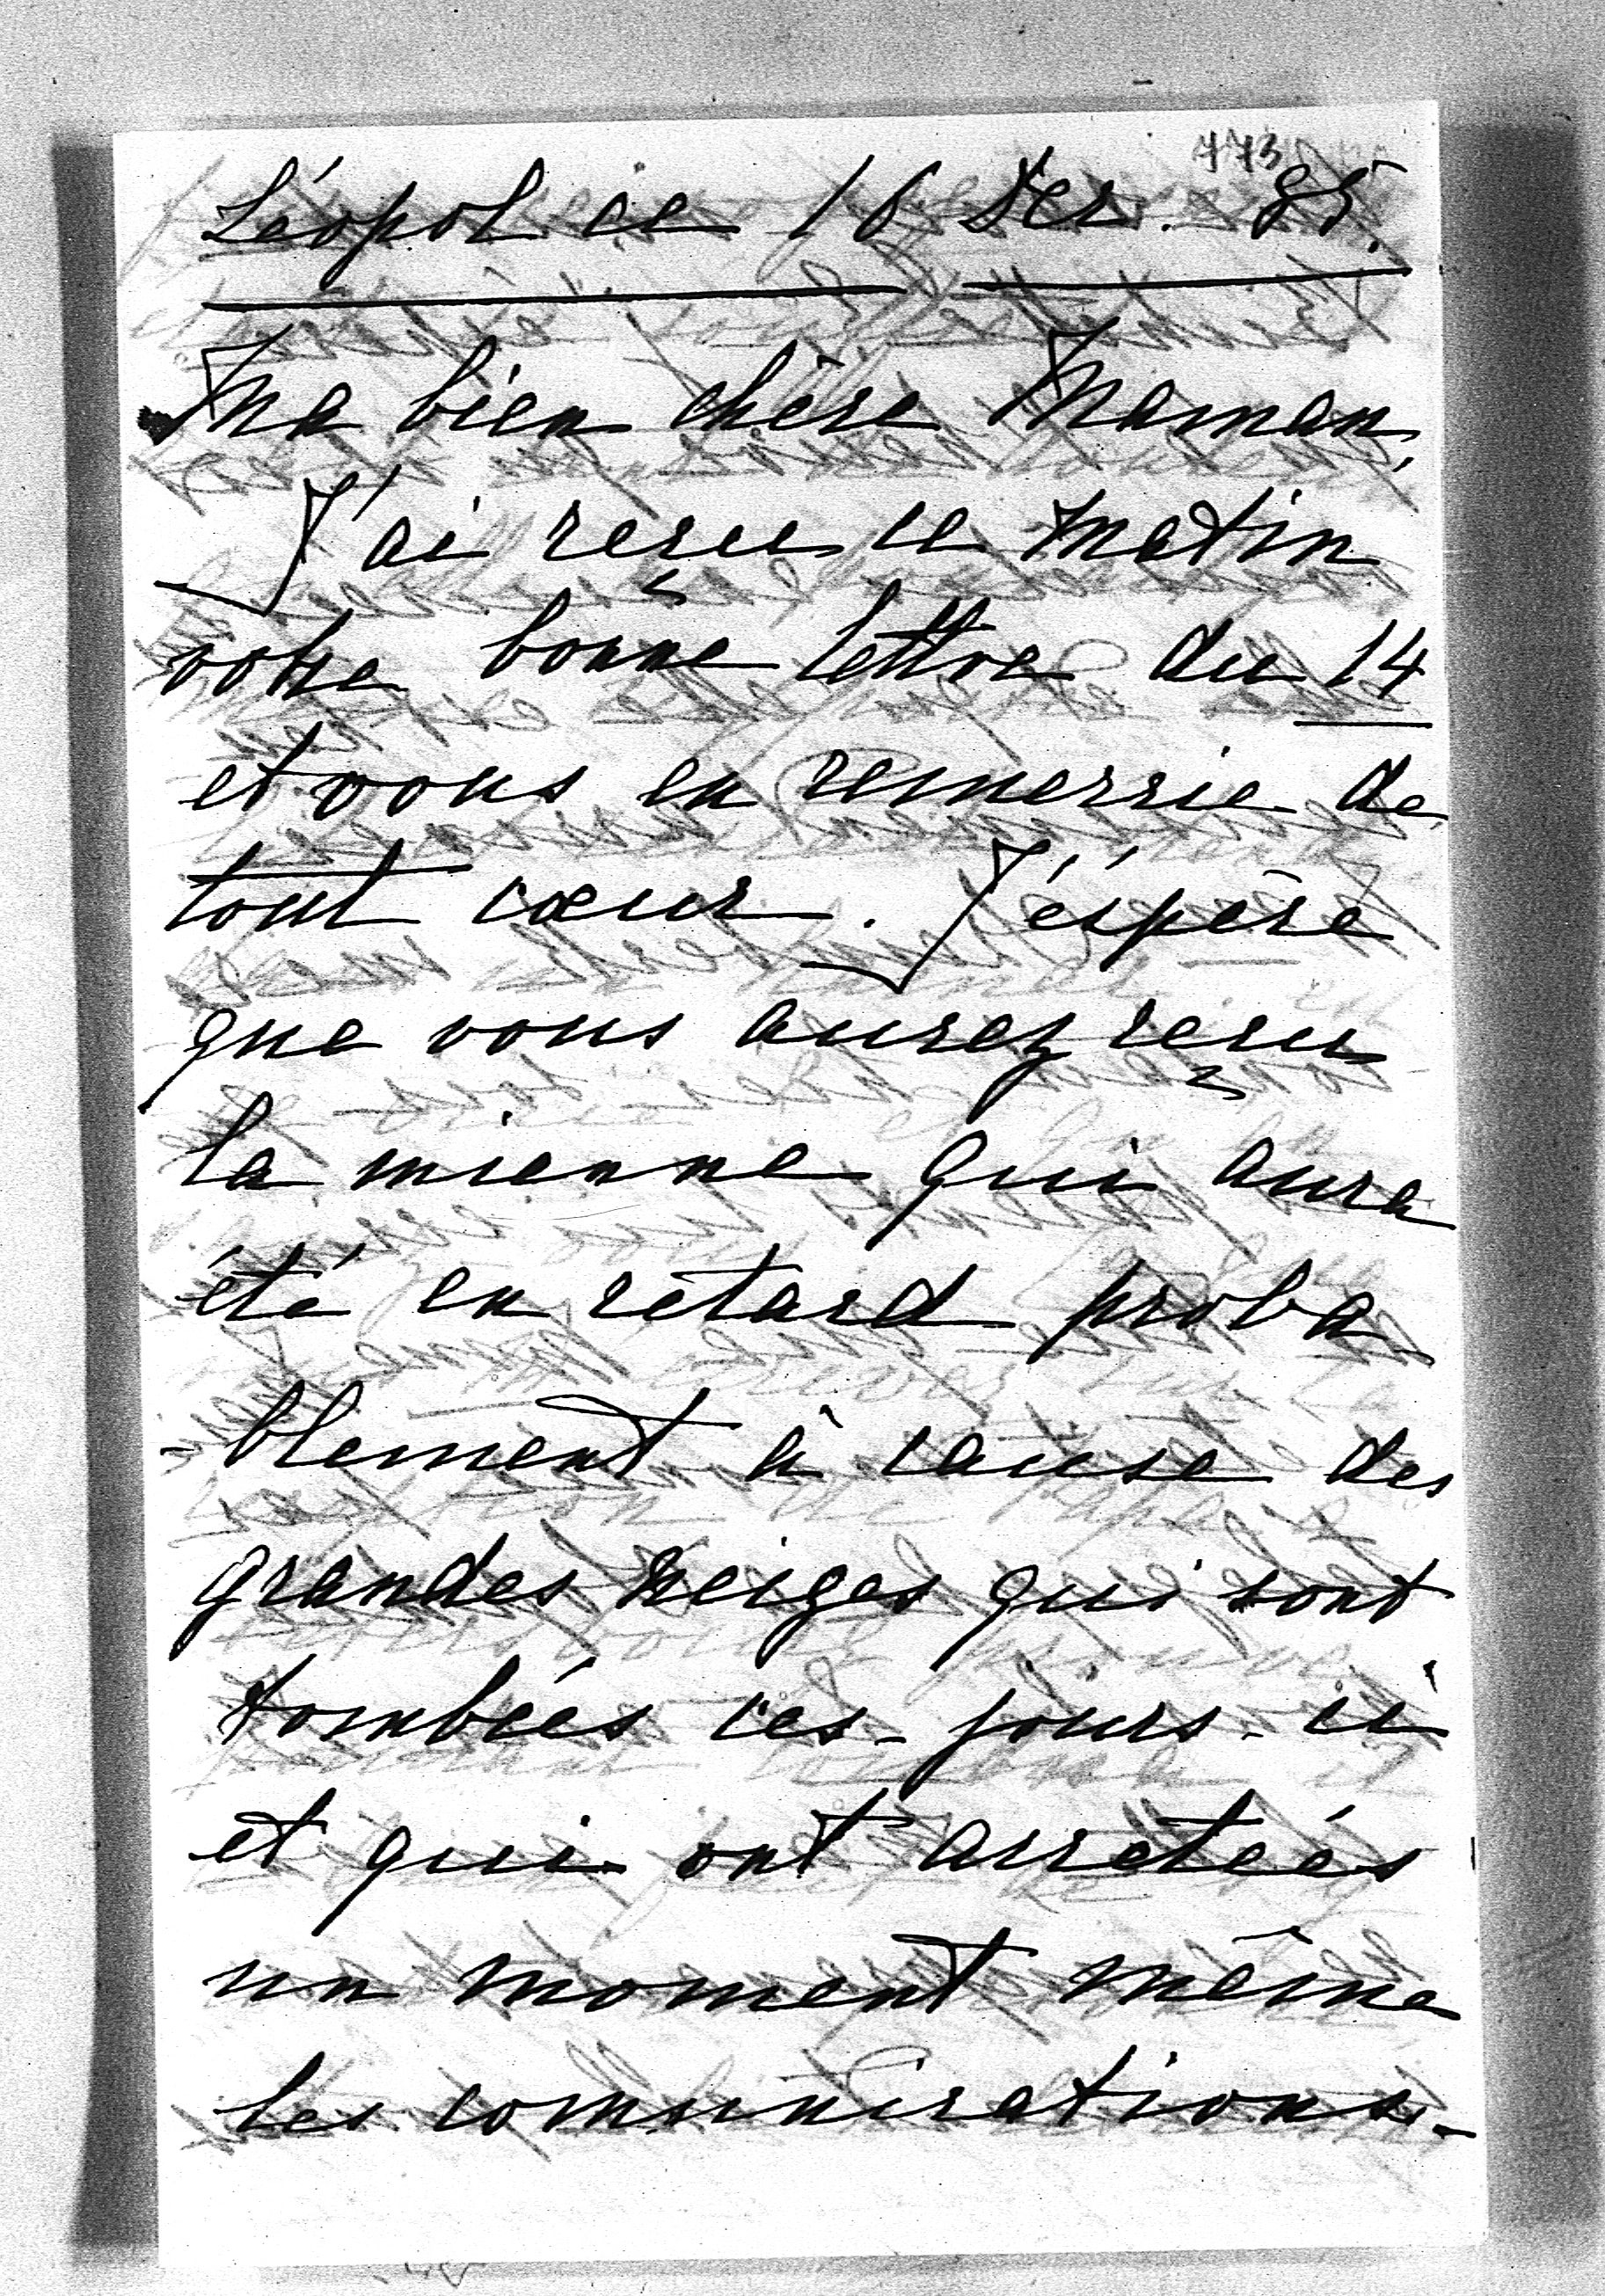 773
Léopol ce 16 Dec. 85.
Ma bien chère Maman,
J'ai reçu ce matin
votre bonne lettre du 14
et vous en remercie de
tout cœur. J'éspère
que vous aurez reçu
la mienne qui aura
été en retard proba
-blement à cause des
grandes neiges qui sont
tombées ces-jours-ci
et qui ont arretées
un moment même
les communications.-